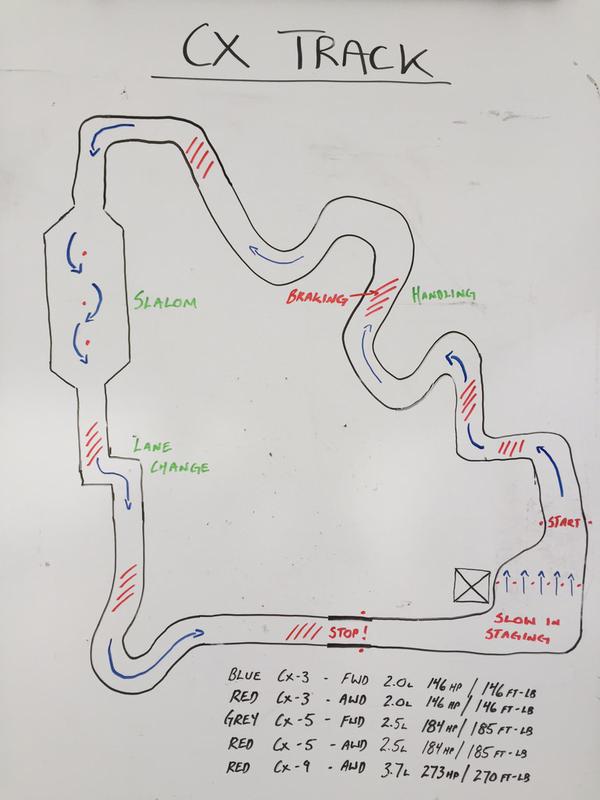 CX TRACK
SLALOM
BRAKING
HANDLING
LANE
CHANGE
START
SLOW IN
STAGING
STOP!
BLUE CX-3 - FWD 2.0L 146HP/146 FT-LB
RED CX-3 - AWD 2.0L 146HP/146 FT-LB
GREY CX-5 - FWD 2.5L 184HP/185 FT-LB
RED CX-5 - AWD 2.5L 184HP/185 FT-LB
RED CX-9 - AWD 3.7L 273HP/270 FT-LB